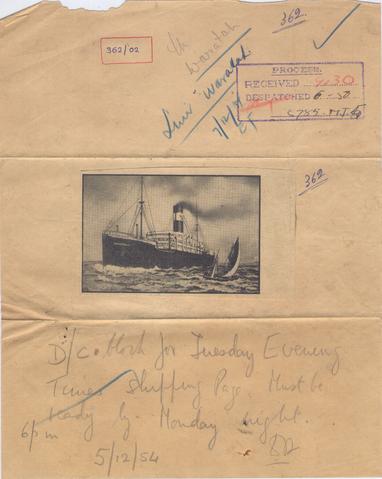 362
362/02
Waratah
Liner "Waratah"
PROCESS.
RECEIVED 4.30
DESPATCHED 6.30
362
D/C block for Tuesday Evening
Times Shipping Page. Must be
ready by Monday night.
6pm
5/12/54